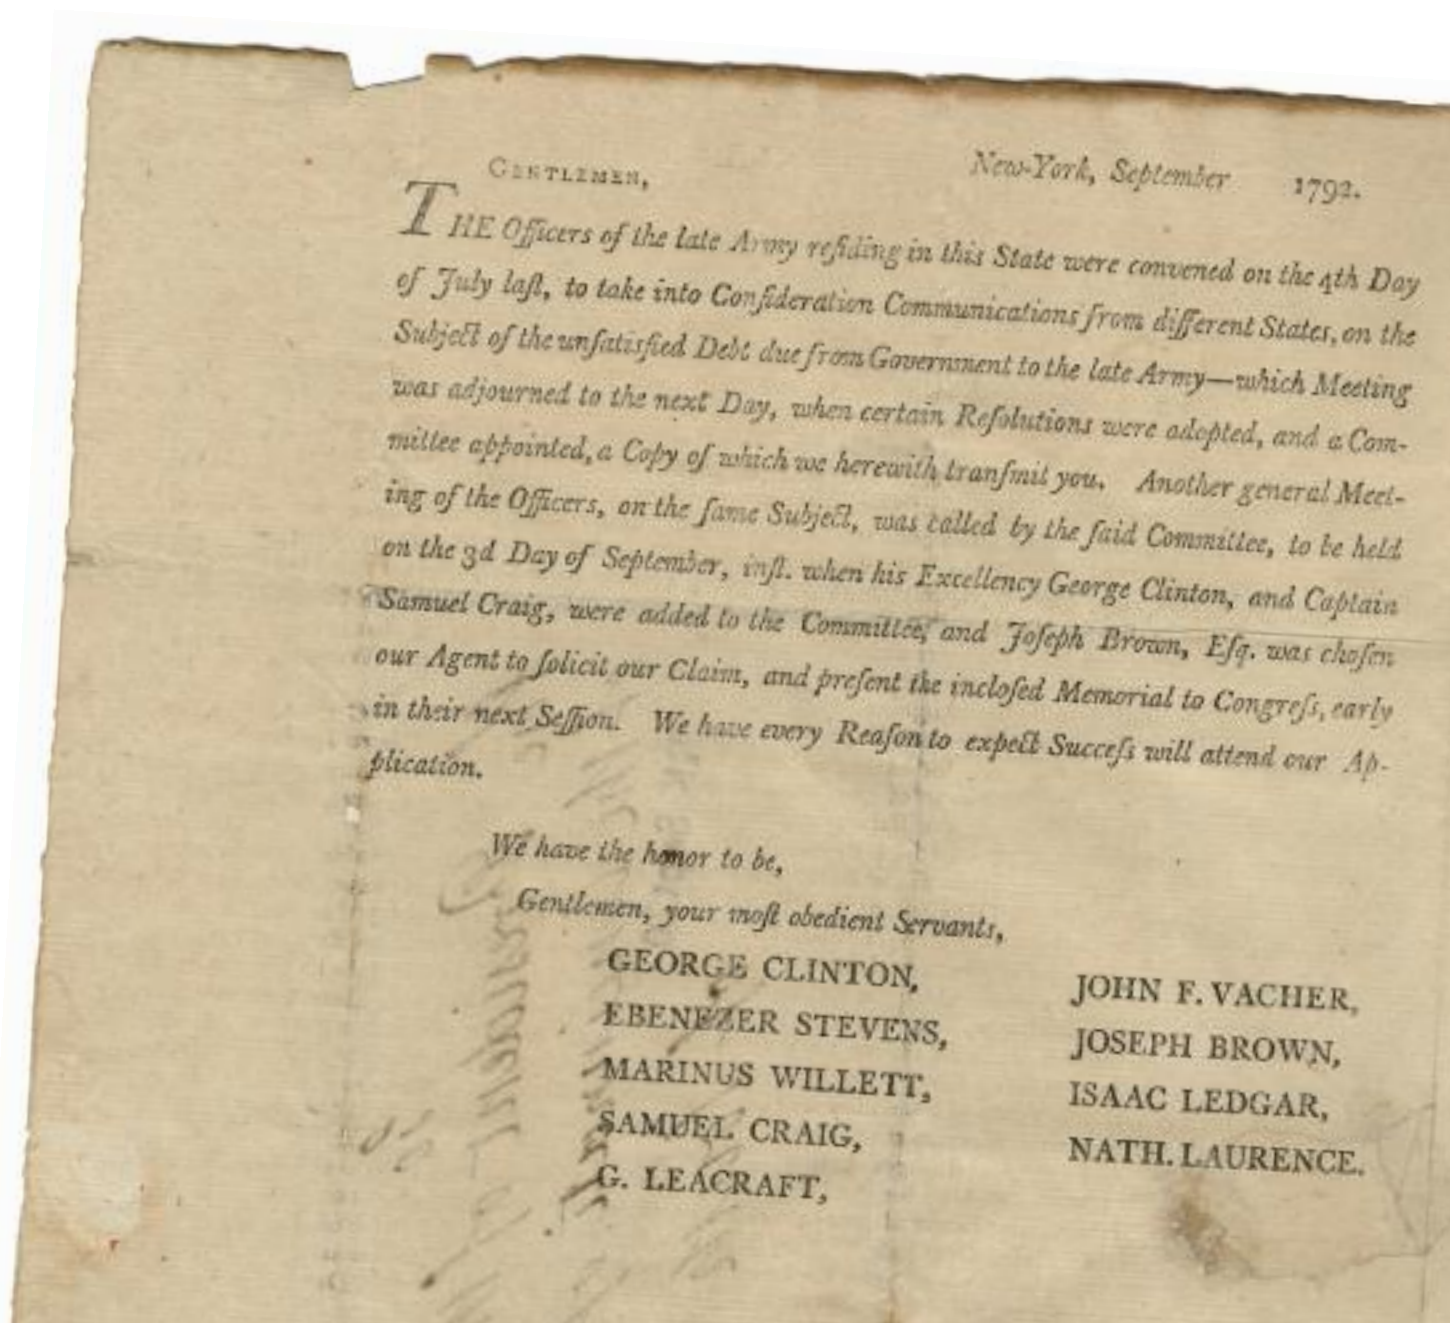 GENTLEMEN,
New-York, September 1792.
THE Officers of the late Army reſiding in this State were convened on the 4th Day
of July laſt, to take into Conſideration Communications from different States, on the
Subject of the unſatisfied Debt due from Government to the late Army—which Meeting
was adjourned to the next Day, when certain Reſolutions were adopted, and a Com-
mittee appointed, a Copy of which we herewith tranſmit you. Another general Meet-
ing of the Officers, on the ſame Subject, was called by the ſaid Committee, to be held
on the 3d Day of September, inſt. when his Excellency George Clinton, and Captain
Samuel Craig, were added to the Committee, and Joſeph Brown, Eſq. was choſen
our Agent to ſolicit our Claim, and preſent the incloſed Memorial to Congreſs, early
in their next Seſſion. We have every Reaſon to expect Succeſs will attend our Ap-
plication.
We have the honor to be,
Gentlemen, your moſt obedient Servants,
GEORGE CLINTON,
EBENEZER STEVENS,
MARINUS WILLETT,
SAMUEL CRAIG,
G. LEACRAFT,
JOHN F. VACHER,
JOSEPH BROWN,
ISAAC LEDGAR,
NATH. LAURENCE.